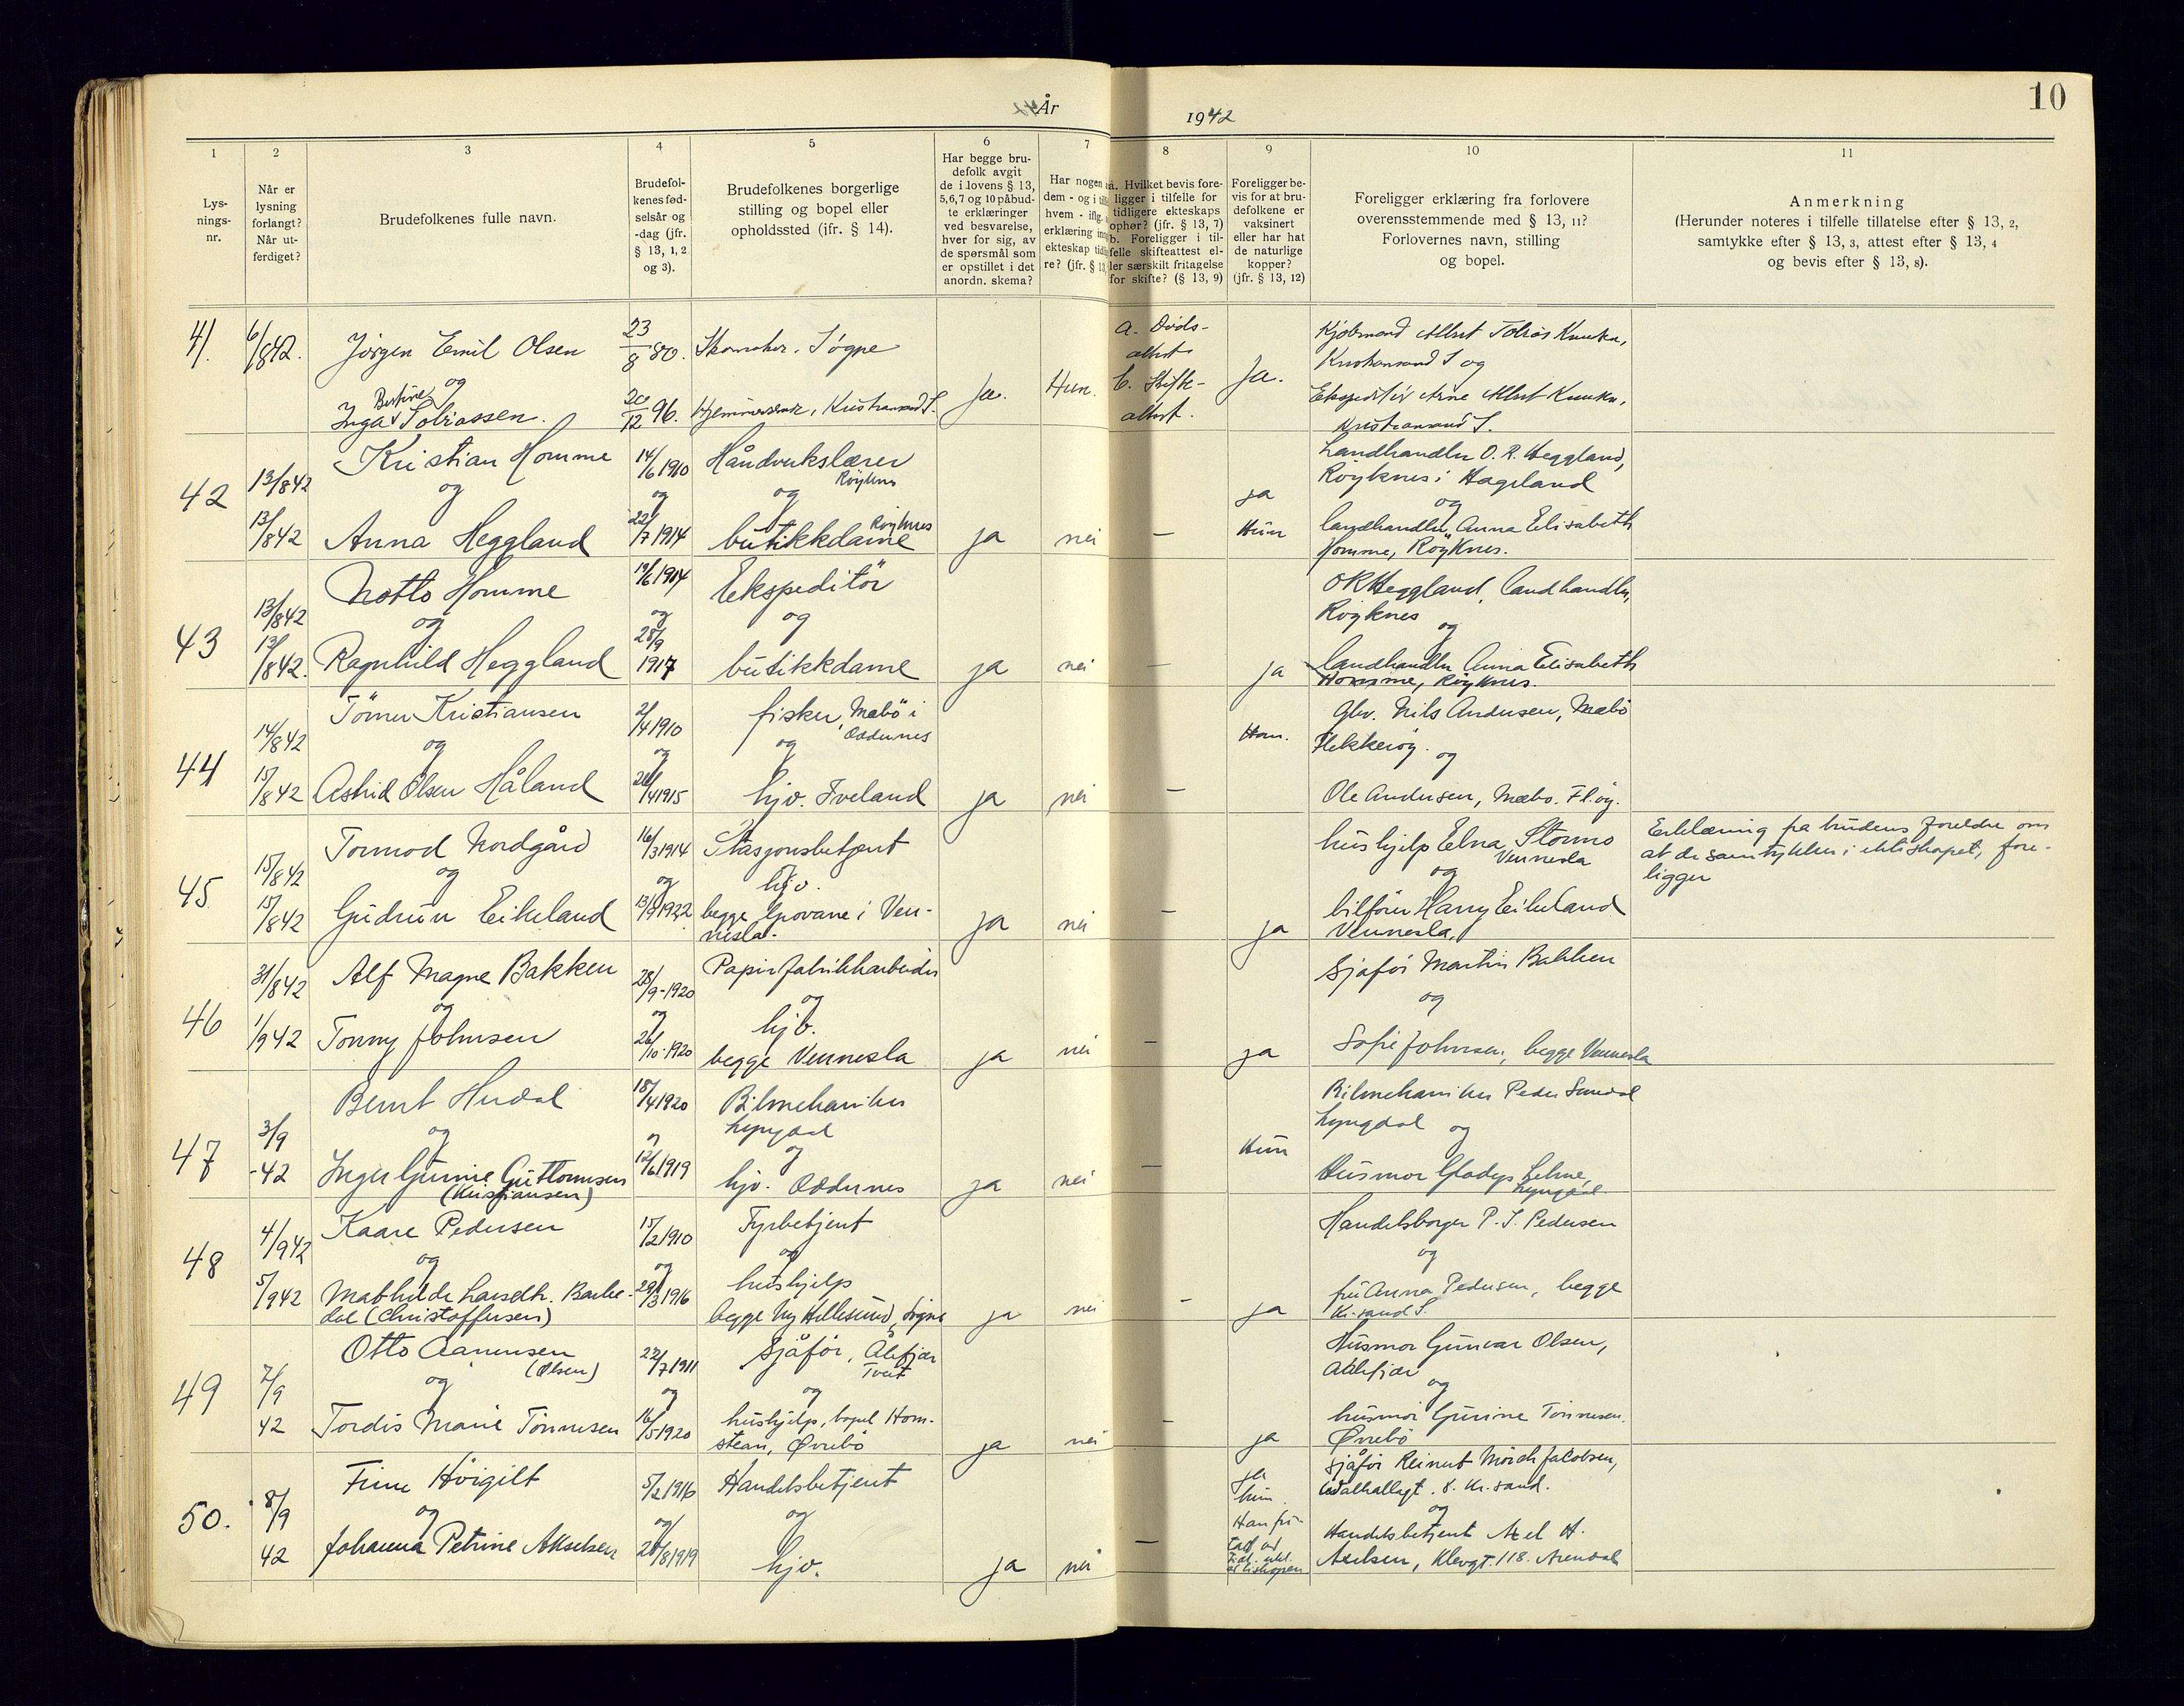 10
År 1942
1
2
3
4
5
6
7
8
9
10
11
Lys-
nings-
nr.
Når er
lysning
forlangt?
Når ut-
ferdiget?
Brudefolkenes fulle navn.
Brudefol-
kenes fød-
selsår og
-dag (jfr.
§ 13, 1, 2
og 3).
Brudefolkenes borgerlige
stilling og bopel eller
opholdssted (jfr. § 14).
Har begge bru-
defolk avgit
de i lovens § 13,
5,6,7 og 10 påbud-
te erklæringer
ved besvarelse,
hver for sig, av
de spørsmål som
er opstillet i det
anordn. skema?
Har nogen
dem - og i
hvem - iflg.
erklæring
ekteskap
re? (jfr. §
a. Hvilket bevis fore-
ligger i tilfelle for
tidligere ekteskaps
ophør? (jfr. § 13, 7)
b. Foreligger i til-
felle skifteattest el-
ler særskilt fritagelse
for skifte? (§ 13, 9)
Foreligger be-
vis for at bru-
defolkene er
vaksinert
eller har hat
de naturlige
kopper?
(jfr. § 13, 12)
Foreligger erklæring fra forlovere
overensstemmende med § 13, 11?
Forlovernes navn, stilling
og bopel.
Anmerkning
(Herunder noteres i tilfelle tillatelse efter § 13, 2,
samtykke efter § 13, 3, attest efter § 13, 4
og bevis efter § 13, 8).
41.
6/842.
Jørgen Emil Olsen
og
Bertine
Inga Tobiassen.
23/8 80.
20/12 96.
Skomaker, Søgne
Hjemmeværende, Kristiansand S.
Ja.
Hun.
a. Døds-
attest
b. Skifte-
attest.
Ja.
Kjøbmand Albert Tobias Knutsen,
Kristiansand S og
Ekspeditør Arne Albert Knutsen,
Kristiansand S.
42
13/842
13/842
Kristian Homme
og
Anna Heggland
14/6 1910
og
22/7 1914
Håndverkslærer
Röyknes
og
Röyknes
butikkdame
ja
nei
—
ja
Hun
Landhandler O. R. Heggland,
Röyknes i Hægeland
og
landhandler Anna Elisabeth
Homme, Röyknes.
43
13/842
13/842.
Notto Homme
og
Ragnhild Heggland
19/6 1914
og
28/9
1917
Ekspeditör
og
butikkdame
ja
nei
—
ja
O R Heggland, landhandler,
Röyknes
og
landhandler Anna Elisabeth
Homme, Röyknes.
44
14/842
15/842
Tömer Kristiansen
og
Astrid Olsen Håland
2/4 1910
og
26/4 1915
fisker, Mæbö i
Oddernes
og
hjv. Iveland
ja
nei
—
Han.
Gbr. Nils Andersen, Mæbö
Flekkeröy.
og
Ole Andersen, Mæbö. Fl.öy.
45
15/842
15/842
Tormod Nordgård
og
Gudrun Eikeland
16/3 1914
og
13/9 1922
Stasjonsbetjent
hjv.
begge Grovane i Ven-
nesla.
ja
nei
—
ja
hushjelp Elna Stormo
Vennesla
og
bilförer Harry Eikeland
Vennesla,
Erklæring fra brudens foreldre om
at de samtykker i ekteskapet, fore-
ligger
46
31/842
1/942
Alf Magne Bakken
og
Tonny Johnsen
28/9-1920
og
26/10-1920
Papirfabrikkarbeider
og
hjv.
begge Vennesla
ja
nei
—
ja
Sjåför Martin Bakken
og
Sofie Johnsen, begge Vennesla
47
3/9
-42
Bernt Hudal
og
Inger Gunnie Guttormsen
(Kristiansen)
18/4 1920
og
12/6 1919
Bilmekaniker
Lyngdal
og
hjv. Oddernes
ja
nei
—
Hun
Bilmekaniker Peder
Lyngdal og
Husmor Gladys Lehne,
Lyngdal.
48
4/942
5/942
Kaare Pedersen
og
Mathilde
dal (Christoffersen)
15/2 1910
og
29/3 1916
Fyrbetjent
og
hushjelp
begge Ny Hellesund, Søgne
ja
nei
—
ja
Handelsborger P. S. Pedersen
og
fru Anna Pedersen, begge
Kr.sand S.
49
7/9
42
Otto Aanensen
(Olsen)
og
Tordis Marie Tönnesen
22/7 1911
og
16/5 1920
Sjåför, Ålefjær
Tveit
og
hushjelp, bopel Hom-
stean, Øvrebö
ja
nei
—
ja
Husmor Gunvar Olsen,
Ålefjær
og
husmor Gurine Tönnesen.
Øvrebö
50.
8/9
42
Finn Höigilt
og
Johanna Petrine Akselsen
5/2 1916
og
28/8 1919
Handelsbetjent
og
hjv.
ja
nei
—
ja
hun
Han fri-
tatt
Sjåför Reinert Mörch Jakobsen,
Walhallagt. 8. Kr.sand.
og
Handelsbetjent Axel H.
Axelsen, Klevgt. 118. Arendal